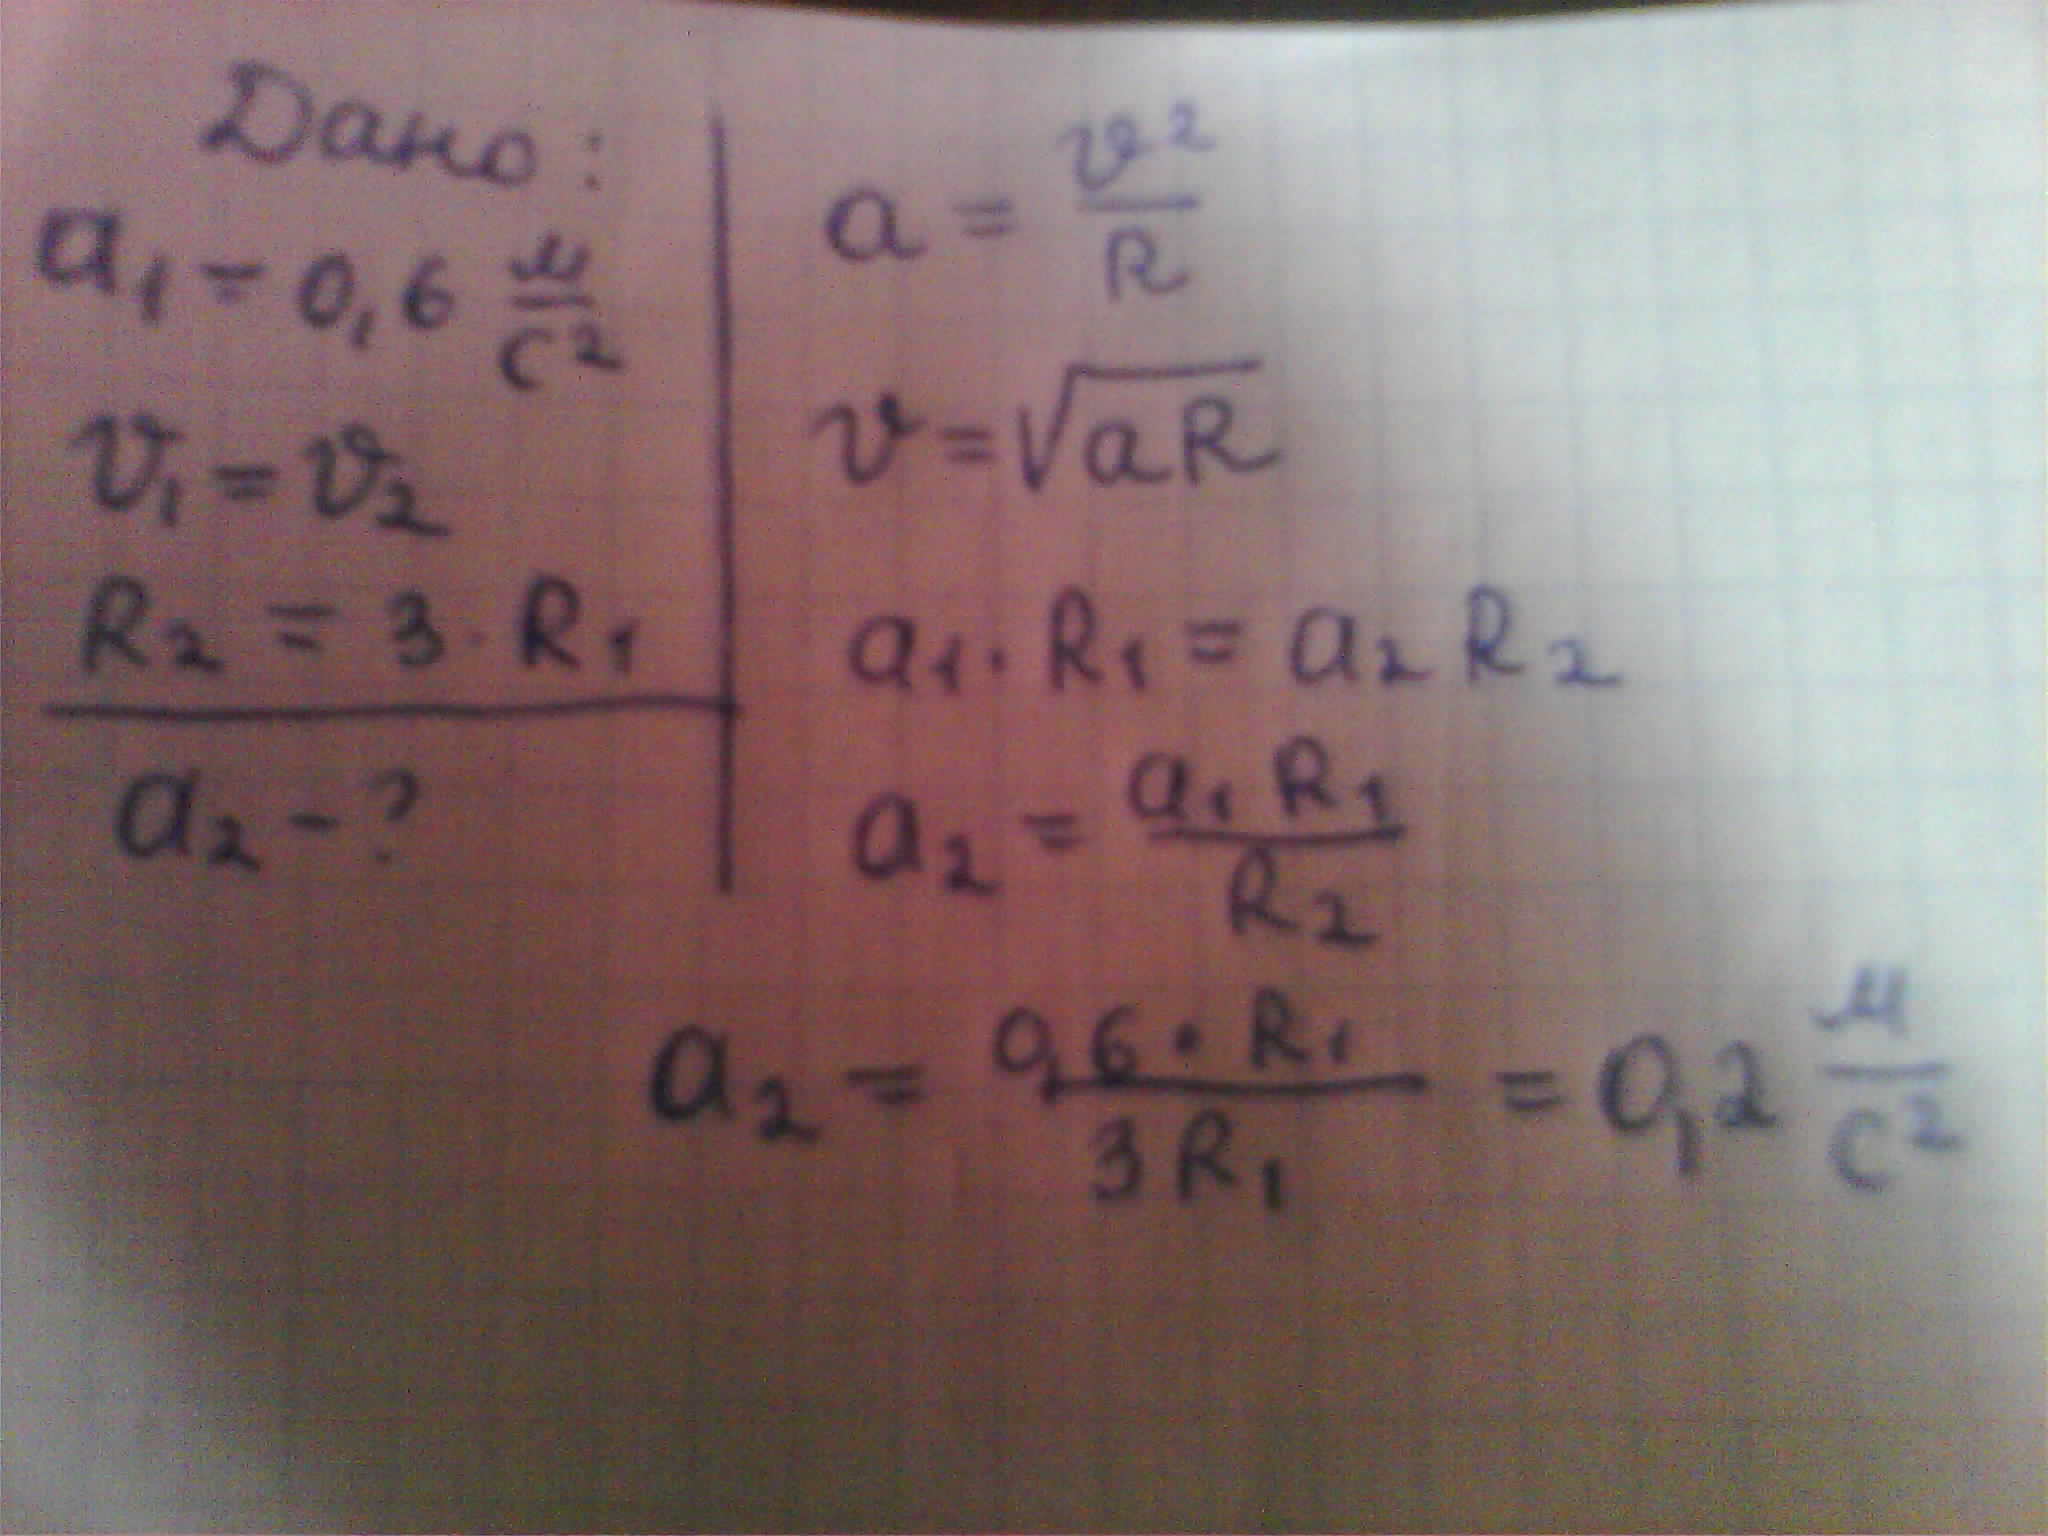 Дано:
a₁ = 0,6 м/с²
v₁ = v₂
R₂ = 3 · R₁
a₂ - ?
a = v²/R
v = √aR
a₁ · R₁ = a₂ R₂
a₂ = a₁ R₁ / R₂
a₂ = 0,6 · R₁ / 3 R₁ = 0,2 м/с²